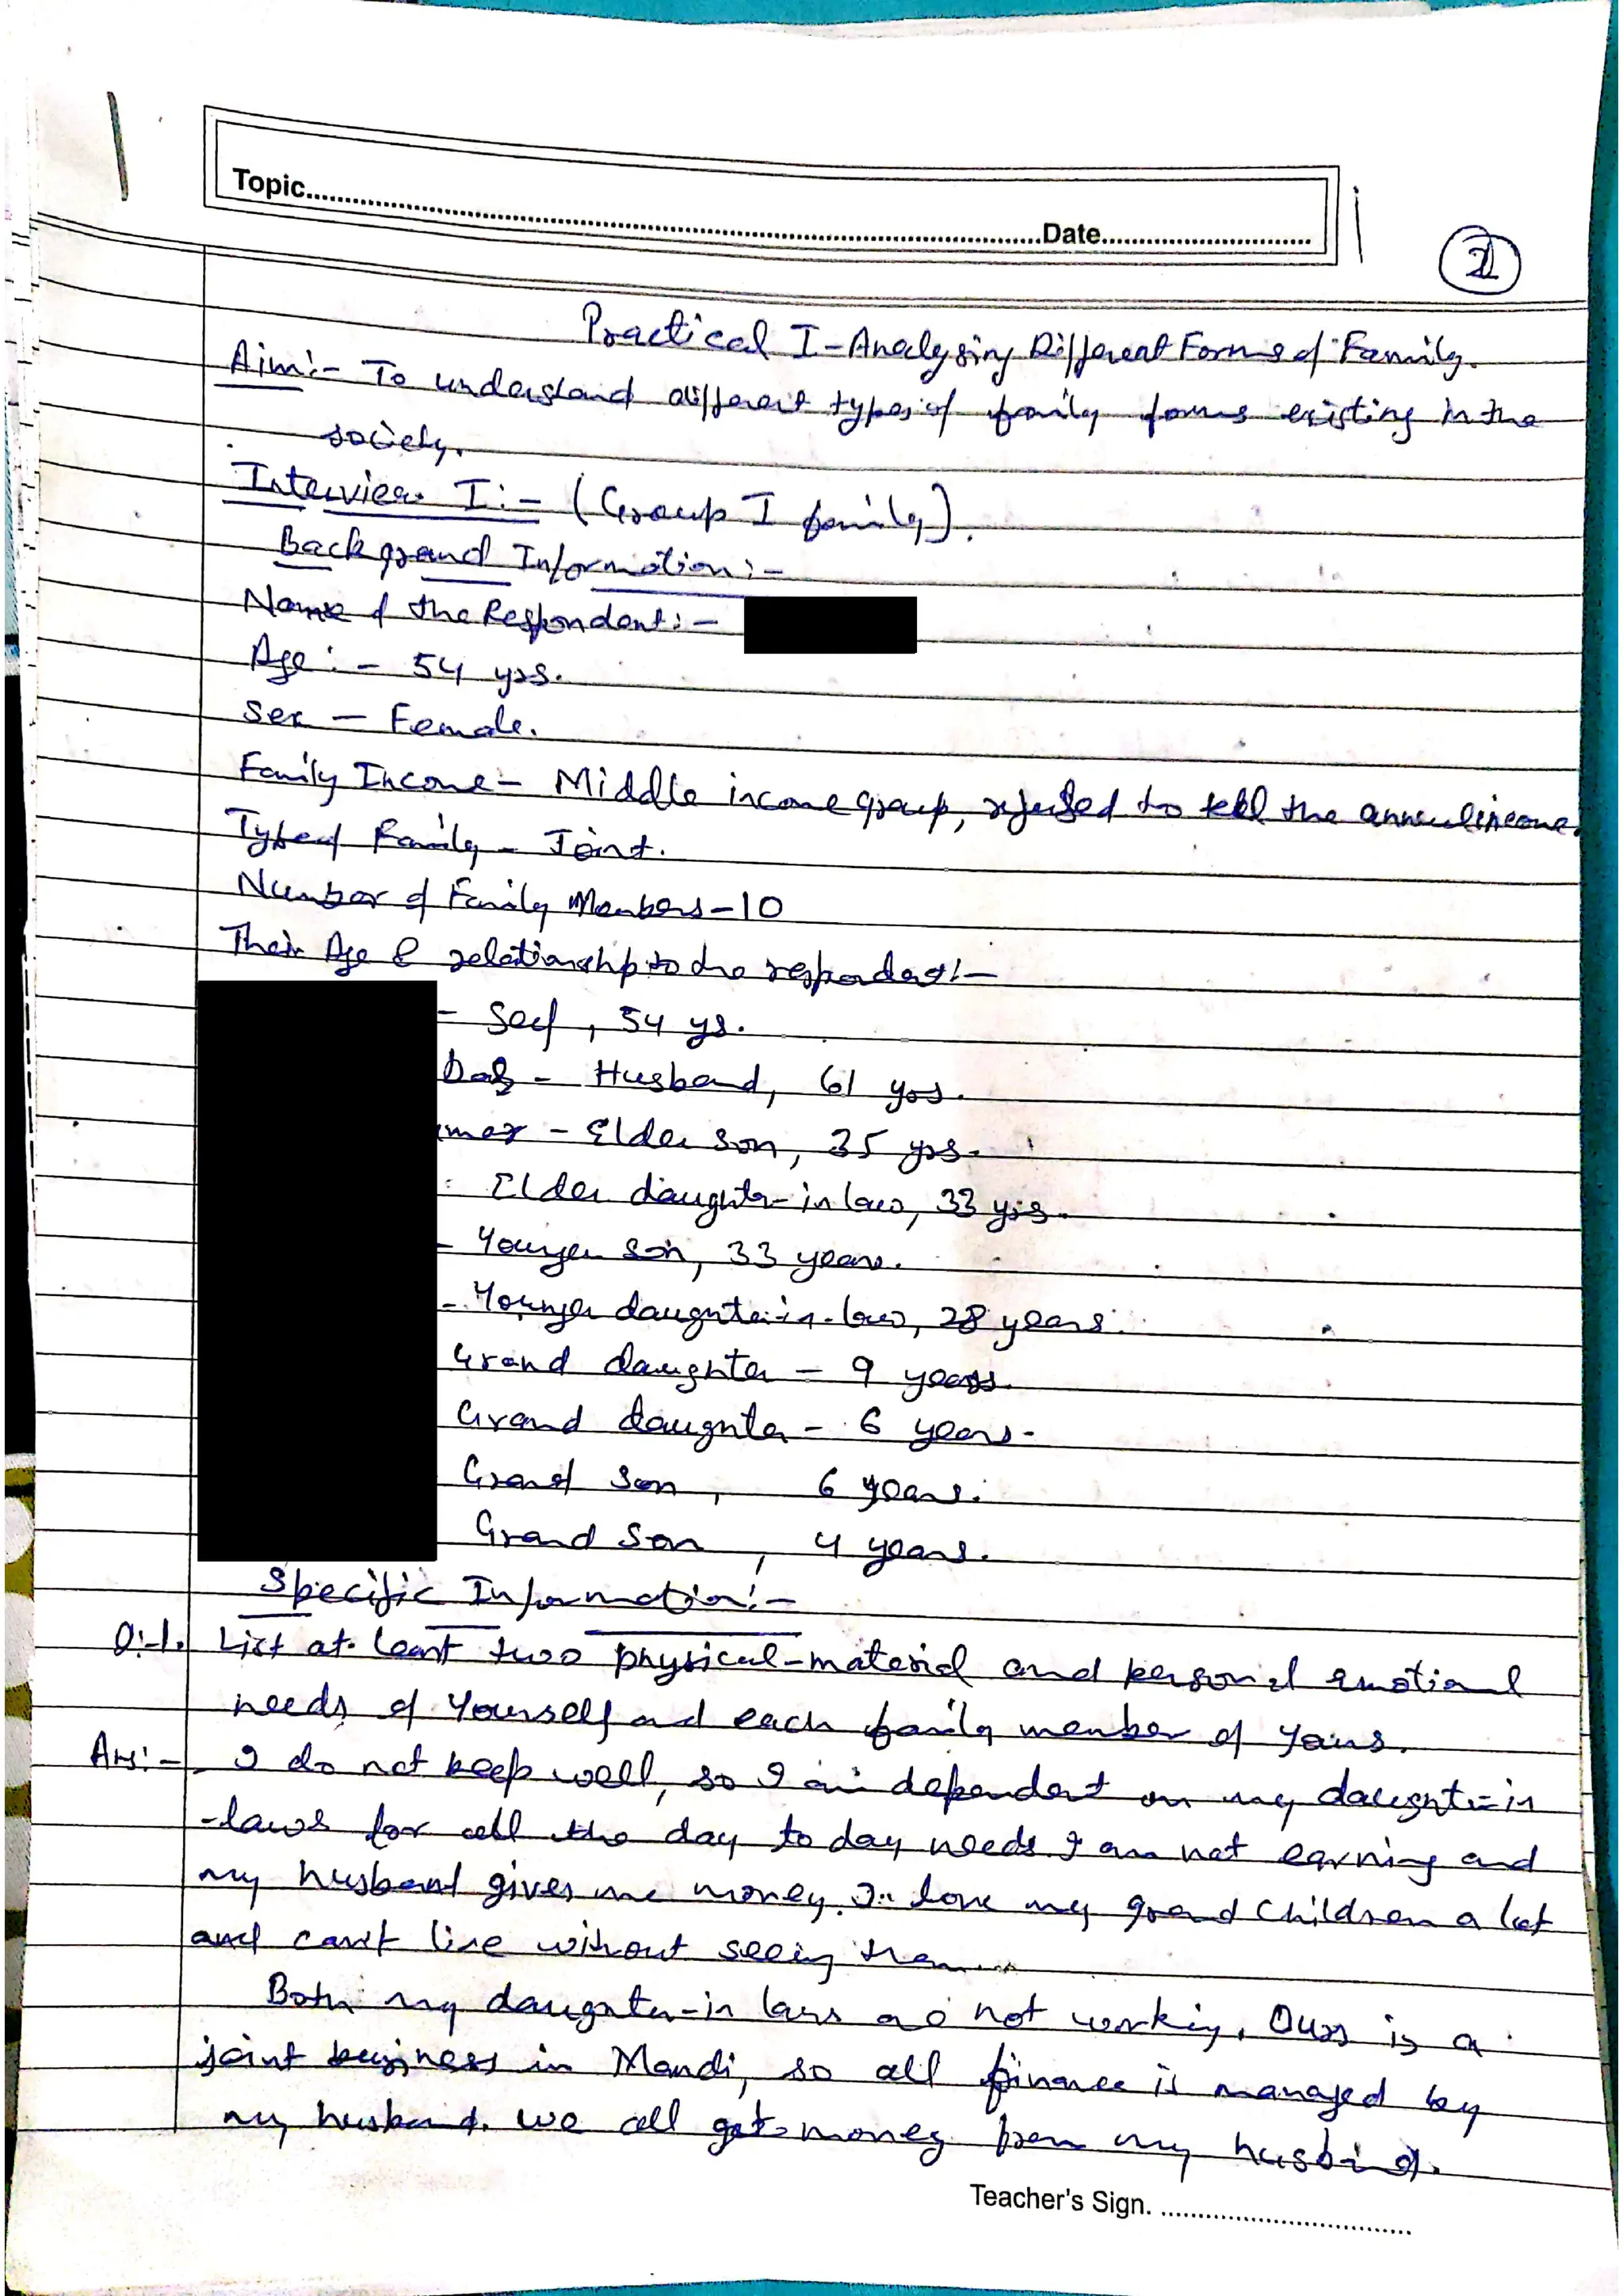 Topic..........Date..........
2
Practical I - Analysing Different Forms of Family.
Aim:- To understand different types of family forms existing in the
society.
Interview I:- (Group I family).
Background Information:-
Name of the Respondent:-
Age:- 54 yrs.
Sex - Female.
Family Income - Middle income group, refused to tell the annual income.
Type of Family - Joint.
Number of Family Members - 10
Their Age & relationship to the respondent:-
- Self, 54 ys.
- Husband, 61 yrs.
- Elder son, 35 yrs.
Elder daughter-in law, 33 yrs.
- Younger son, 33 years.
- Younger daughter-in-law, 28 years.
Grand daughter - 9 years.
Grand daughter - 6 years.
Grand Son, 6 years.
Grand Son, 4 years.
Specific Information:-
Q:-1. List at least two physical-material and personal emotional
needs of yourself and each family member of yours.
Ans:- I do not keep well, so I am dependent on my daughter-in
-laws for all the day to day needs I am not earning and
my husband gives me money. I love my grand children a lot
and can't live without seeing them....
Both my daughter-in laws are not working. Ours is a
joint business in Mandi, so all finance is managed by
my husband. we all get money from my husband.
Teacher's Sign. ..........